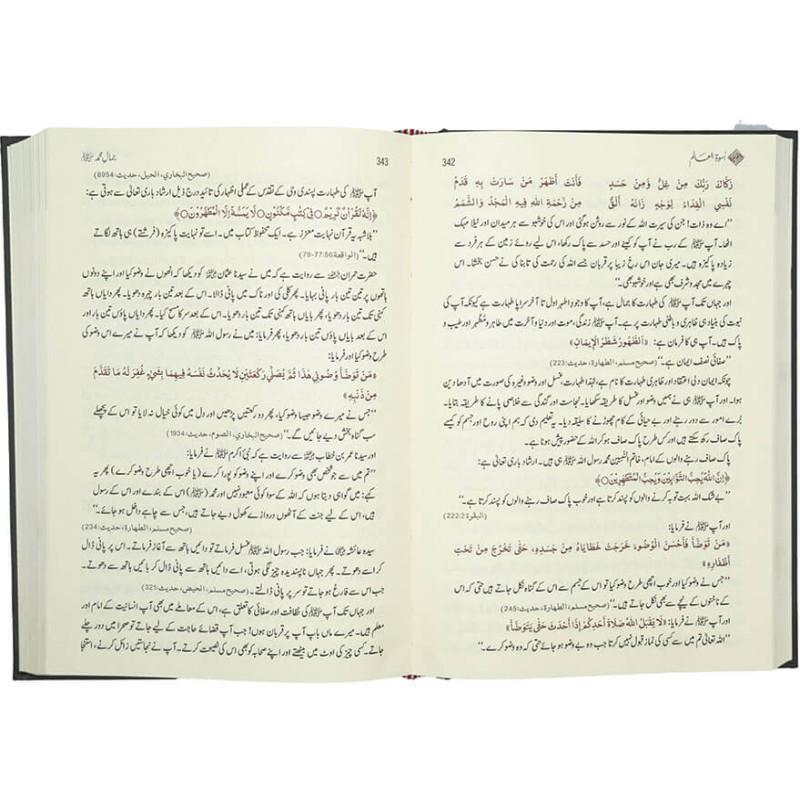 342
اسوۃ العالم
زَكَّاكَ رَبُّكَ مِنْ غِلٍّ وَّمِنْ حَسَدٍ فَأَنْتَ أَطْهَرُ مَنْ سَارَتْ بِهِ قَدَمُ
نَفْسِي الْفِدَاءُ لِوَجْهٍ زَانَهُ أَلَقٌ مِنْ رَحْمَةِ اللهِ فِيهِ الْمَجْدُ وَالشَّمَمُ
’’اے وہ ذات! جن کی سیرت اللہ کے نور سے روشن ہوگئی اور اس کی خوشبو سے ہر میدان اور ٹیلا مہک
اٹھا۔ آپ ﷺ کے رب نے آپ کو کینے اور حسد سے پاک رکھا، اس لیے روئے زمین کے ہر فرد سے
زیادہ پاکیزہ ہیں۔ میری جان اس رخ زیبا پر قربان جسے اللہ کی رحمت کی تابنا کی نے حسن بخشا۔ اس
چہرے میں مجد و شرف بھی ہے اور خوشبو بھی۔‘‘
اور جہاں تک آپ ﷺ کی طہارت کا جمال ہے، آپ کا وجود اطہر اول تا آخر سراپا طہارت ہے کیونکہ آپ کی
نبوت کی بنیاد ہی ظاہری و باطنی طہارت پر ہے۔ آپ ﷺ زندگی، موت اور دنیا و آخرت میں طاہر و مطہر اور طیب و
پاک ہیں۔ آپ ہی کا فرمان ہے: «اَلطُّهُورُ شَطْرُ الْإِيمَانِ»
’’صفائی نصف ایمان ہے۔‘‘ (صحیح مسلم، الطهارة، حدیث:223)
چونکہ ایمان دلی اعتقاد اور ظاہری طہارت کا نام ہے، لہٰذا طہارت، غسل اور وضو وغیرہ کی صورت میں آدھا دین
ہوا۔ اور آپ ﷺ ہی نے ہمیں وضو اور غسل کا طریقہ سکھایا۔ نجاست اور گندگی سے خلاصی پانے کا طریقہ بتایا۔
برے امور سے دور رہنے اور بے حیائی کے کام چھوڑنے کا سلیقہ دیا۔ یہ تعلیم دی کہ ہم اپنی روح اور جسم کو کیسے
پاک صاف رکھ سکتے ہیں اور کس طرح پاک صاف ہو کر اللہ کے حضور پیش ہونا ہے۔
پاک صاف رہنے والوں کے امام، خاتم النبیین محمد رسول اللہ ﷺ ہی ہیں۔ ارشاد باری تعالیٰ ہے:
﴿إِنَّ اللّٰهَ يُحِبُّ التَّوَّابِيْنَ وَيُحِبُّ الْمُتَطَهِّرِيْنَ﴾
’’بے شک اللہ بہت توبہ کرنے والوں کو پسند کرتا ہے اور خوب پاک صاف رہنے والوں کو پسند کرتا ہے۔‘‘
(البقرة 222:2)
اور آپ ﷺ نے فرمایا:
«مَنْ تَوَضَّأَ فَأَحْسَنَ الْوُضُوءَ، خَرَجَتْ خَطَايَاهُ مِنْ جَسَدِهِ، حَتَّى تَخْرُجَ مِنْ تَحْتِ
أَظْفَارِهِ»
’’جس نے وضو کیا اور خوب اچھی طرح وضو کیا تو اس کے جسم سے اس کے گناہ نکل جاتے ہیں حتی کہ اس
کے ناخنوں کے نیچے سے بھی نکل جاتے ہیں۔‘‘ (صحیح مسلم، الطهارة، حدیث:245)
اور آپ ﷺ نے فرمایا: «لَا يَقْبَلُ اللهُ صَلَاةَ أَحَدِكُمْ إِذَا أَحْدَثَ حَتَّى يَتَوَضَّأَ»
’’اللہ تعالیٰ تم میں سے کسی کی نماز قبول نہیں کرتا جب وہ بے وضو ہو جائے حتی کہ وہ وضو کرے۔‘‘
343
جمال محمد ﷺ
(صحیح البخاري، الحيل، حدیث:6954)
آپ ﷺ کی طہارت پسندی وحی کے تقدس کے عملی اظہار کی تائید درج ذیل ارشاد باری تعالیٰ سے ہوتی ہے:
﴿إِنَّهُ لَقُرْاٰنٌ كَرِيْمٌ ○ فِيْ كِتٰبٍ مَّكْنُوْنٍ ○ لَّا يَمَسُّهٗ إِلَّا الْمُطَهَّرُوْنَ ○﴾
’’بلاشبہ یہ قرآن نہایت معزز ہے۔ ایک محفوظ کتاب میں۔ اسے تو نہایت پاکیزہ (فرشتے) ہی ہاتھ لگاتے
ہیں۔‘‘ (الواقعة 77:56-79)
حضرت حمران سے روایت ہے کہ میں نے سیدنا عثمان کو دیکھا کہ انھوں نے وضو کیا اور اپنے دونوں
ہاتھوں پر تین تین بار پانی بہایا۔ پھر کلی کی اور ناک میں پانی ڈالا۔ اس کے بعد تین بار چہرہ دھویا۔ پھر دایاں ہاتھ
کہنی تک تین بار دھویا، پھر بایاں ہاتھ کہنی تک تین بار دھویا۔ اس کے بعد سر کا مسح کیا۔ پھر دایاں پاؤں تین بار اور
اس کے بعد بایاں پاؤں تین بار دھویا، پھر فرمایا: میں نے رسول اللہ ﷺ کو دیکھا کہ آپ نے میرے اس وضو کی
طرح وضو کیا اور فرمایا:
«مَنْ تَوَضَّأَ وُضُوئِي هٰذَا ثُمَّ يُصَلِّي رَكْعَتَيْنِ لَا يُحَدِّثُ نَفْسَهُ فِيهِمَا بِشَيْءٍ غُفِرَ لَهُ مَا تَقَدَّمَ
مِنْ ذَنْبِهِ»
’’جس نے میرے وضو جیسا وضو کیا، پھر دو رکعتیں پڑھیں اور دل میں کوئی خیال نہ لایا تو اس کے پچھلے
سب گناہ بخش دیے جائیں گے۔‘‘ (صحیح البخاري، الصوم، حدیث:1934)
سیدنا عمر بن خطاب سے روایت ہے کہ نبیٔ اکرم ﷺ نے فرمایا:
’’تم میں سے جو شخص بھی وضو کرے اور اپنے وضو کو پورا کرے (یا خوب اچھی طرح وضو کرے) پھر یہ
کہے: میں گواہی دیتا ہوں کہ اللہ کے سوا کوئی معبود نہیں اور محمد (ﷺ) اس کے بندے اور اس کے رسول
ہیں، اس کے لیے جنت کے آٹھوں دروازے کھول دیے جاتے ہیں، جس سے چاہے داخل ہو جائے۔‘‘
(صحیح مسلم، الطهارة، حدیث:234)
سیدہ عائشہ نے فرمایا: جب رسول اللہ ﷺ غسل فرماتے تو دائیں ہاتھ سے آغاز فرماتے۔ اس پر پانی ڈال
کر اسے دھوتے۔ پھر جہاں ناپسندیدہ چیز لگی ہوتی، اسے دائیں ہاتھ سے پانی ڈال کر بائیں ہاتھ سے دھوتے۔
جب اس سے فارغ ہو جاتے تو سر پر پانی ڈالتے۔ (صحیح مسلم، الحيض، حدیث:321)
اور جہاں تک آپ ﷺ کی نظافت اور صفائی کا تعلق ہے، اس کے معاملے میں بھی آپ انسانیت کے امام اور
معلم ہیں۔ میرے ماں باپ آپ پر قربان ہوں! جب آپ قضائے حاجت کے لیے جاتے تو صحرا میں دور چلے
جاتے۔ کسی چیز کی اوٹ میں بیٹھتے اور اپنے صحابہ کو بھی اس کی نصیحت کرتے۔ آپ نے نجاستیں زائل کرنے، استنجا